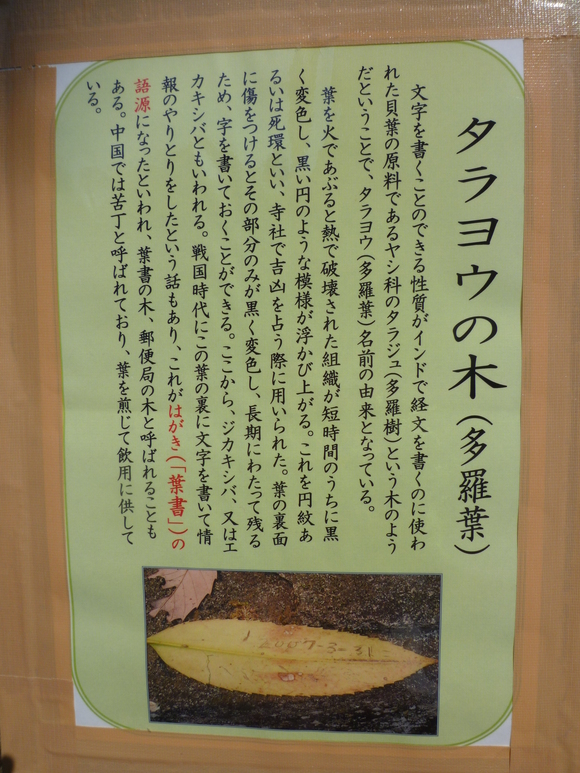 タラヨウの木(多羅葉)
文字を書くことのできる性質がインドで経文を書くのに使わ
れた貝葉の原料であるヤシ科のタラジュ(多羅樹)という木のよう
だということで、タラヨウ(多羅葉)名前の由来となっている。
葉を火であぶると熱で破壊された組織が短時間のうちに黒
く変色し、黒い円のような模様が浮かび上がる。これを円紋あ
るいは死環といい、寺社で吉凶を占う際に用いられた。葉の裏面
に傷をつけるとその部分のみが黒く変色し、長期にわたって残る
ため、字を書いておくことができる。ここから、ジカキシバ、又はエ
カキシバともいわれる。戦国時代にこの葉の裏に文字を書いて情
報のやりとりをしたという話もあり、これがはがき(「葉書」)の
語源になったといわれ、葉書の木、郵便局の木と呼ばれることも
ある。中国では苦丁と呼ばれており、葉を煎じて飲用に供して
いる。
2007-3-31